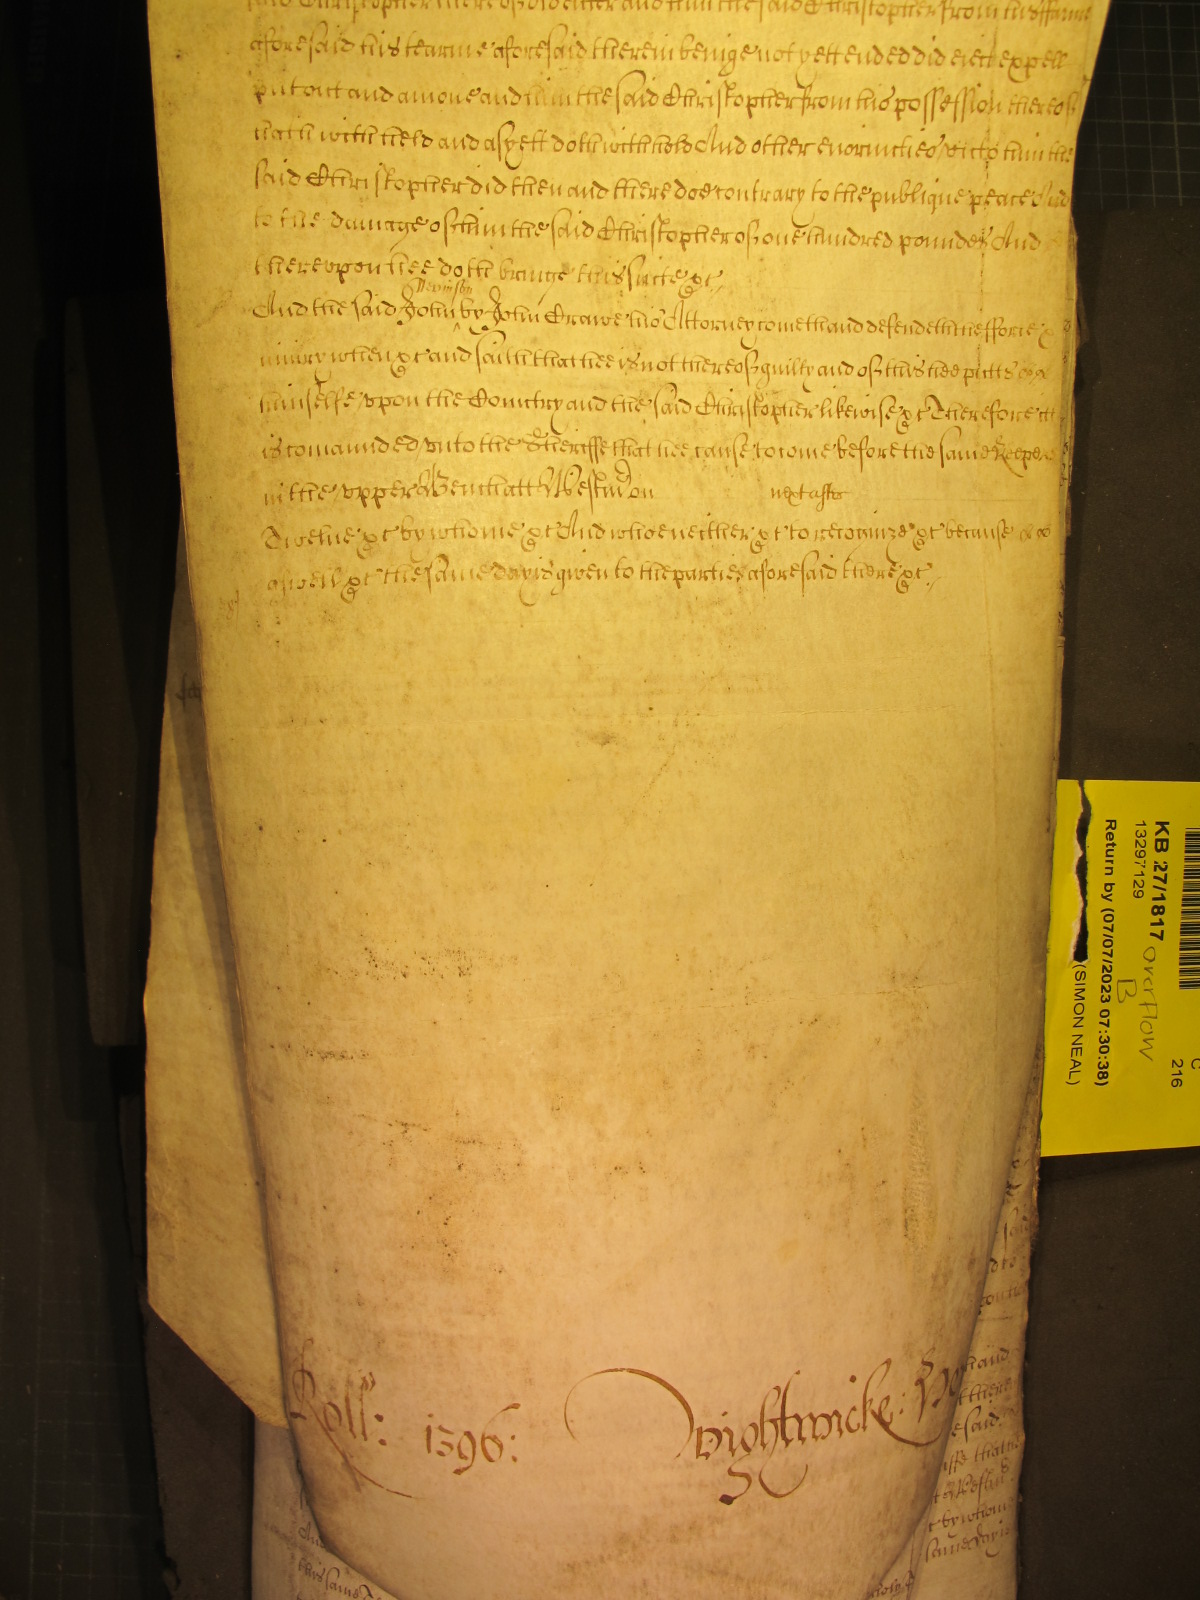 said Christopher thereof did enter and him the said Christopher from his ffarme
aforesaid his tearme aforesaid therein beinge not yett ended did eiect expell
put out and amove and him the said Christopher from his possession thereof
hath with held and as yett doth withhold And other enormities &c to him the
said Christopher did then and there doe contrary to the publique peace And
to the damage of him the said Christopher of one hundred poundes And
therevpon hee doth bringe this suite &c
And the said John by John Crawe his Attorney cometh and defendeth the fforce &
iniury when &c and saith that hee is not thereof guilty and of this hee putts
himselfe vpon the Country and the said Christopher likewise &c Therefore itt
is comaunded vnto the Sheriffe that hee cause to come before the said Keepers
in the vpper Bench att Westm on next after
Twelue &c by whome &c And whoe neither &c to recognize &c because
aswell &c the same day is given to the parties aforesaid there &c
Roll: 1396: Wightwicke:
KB 27/1817 overflow
B
13297129
Return by (07/07/2023 07:30:38)
(SIMON NEAL)
C
216